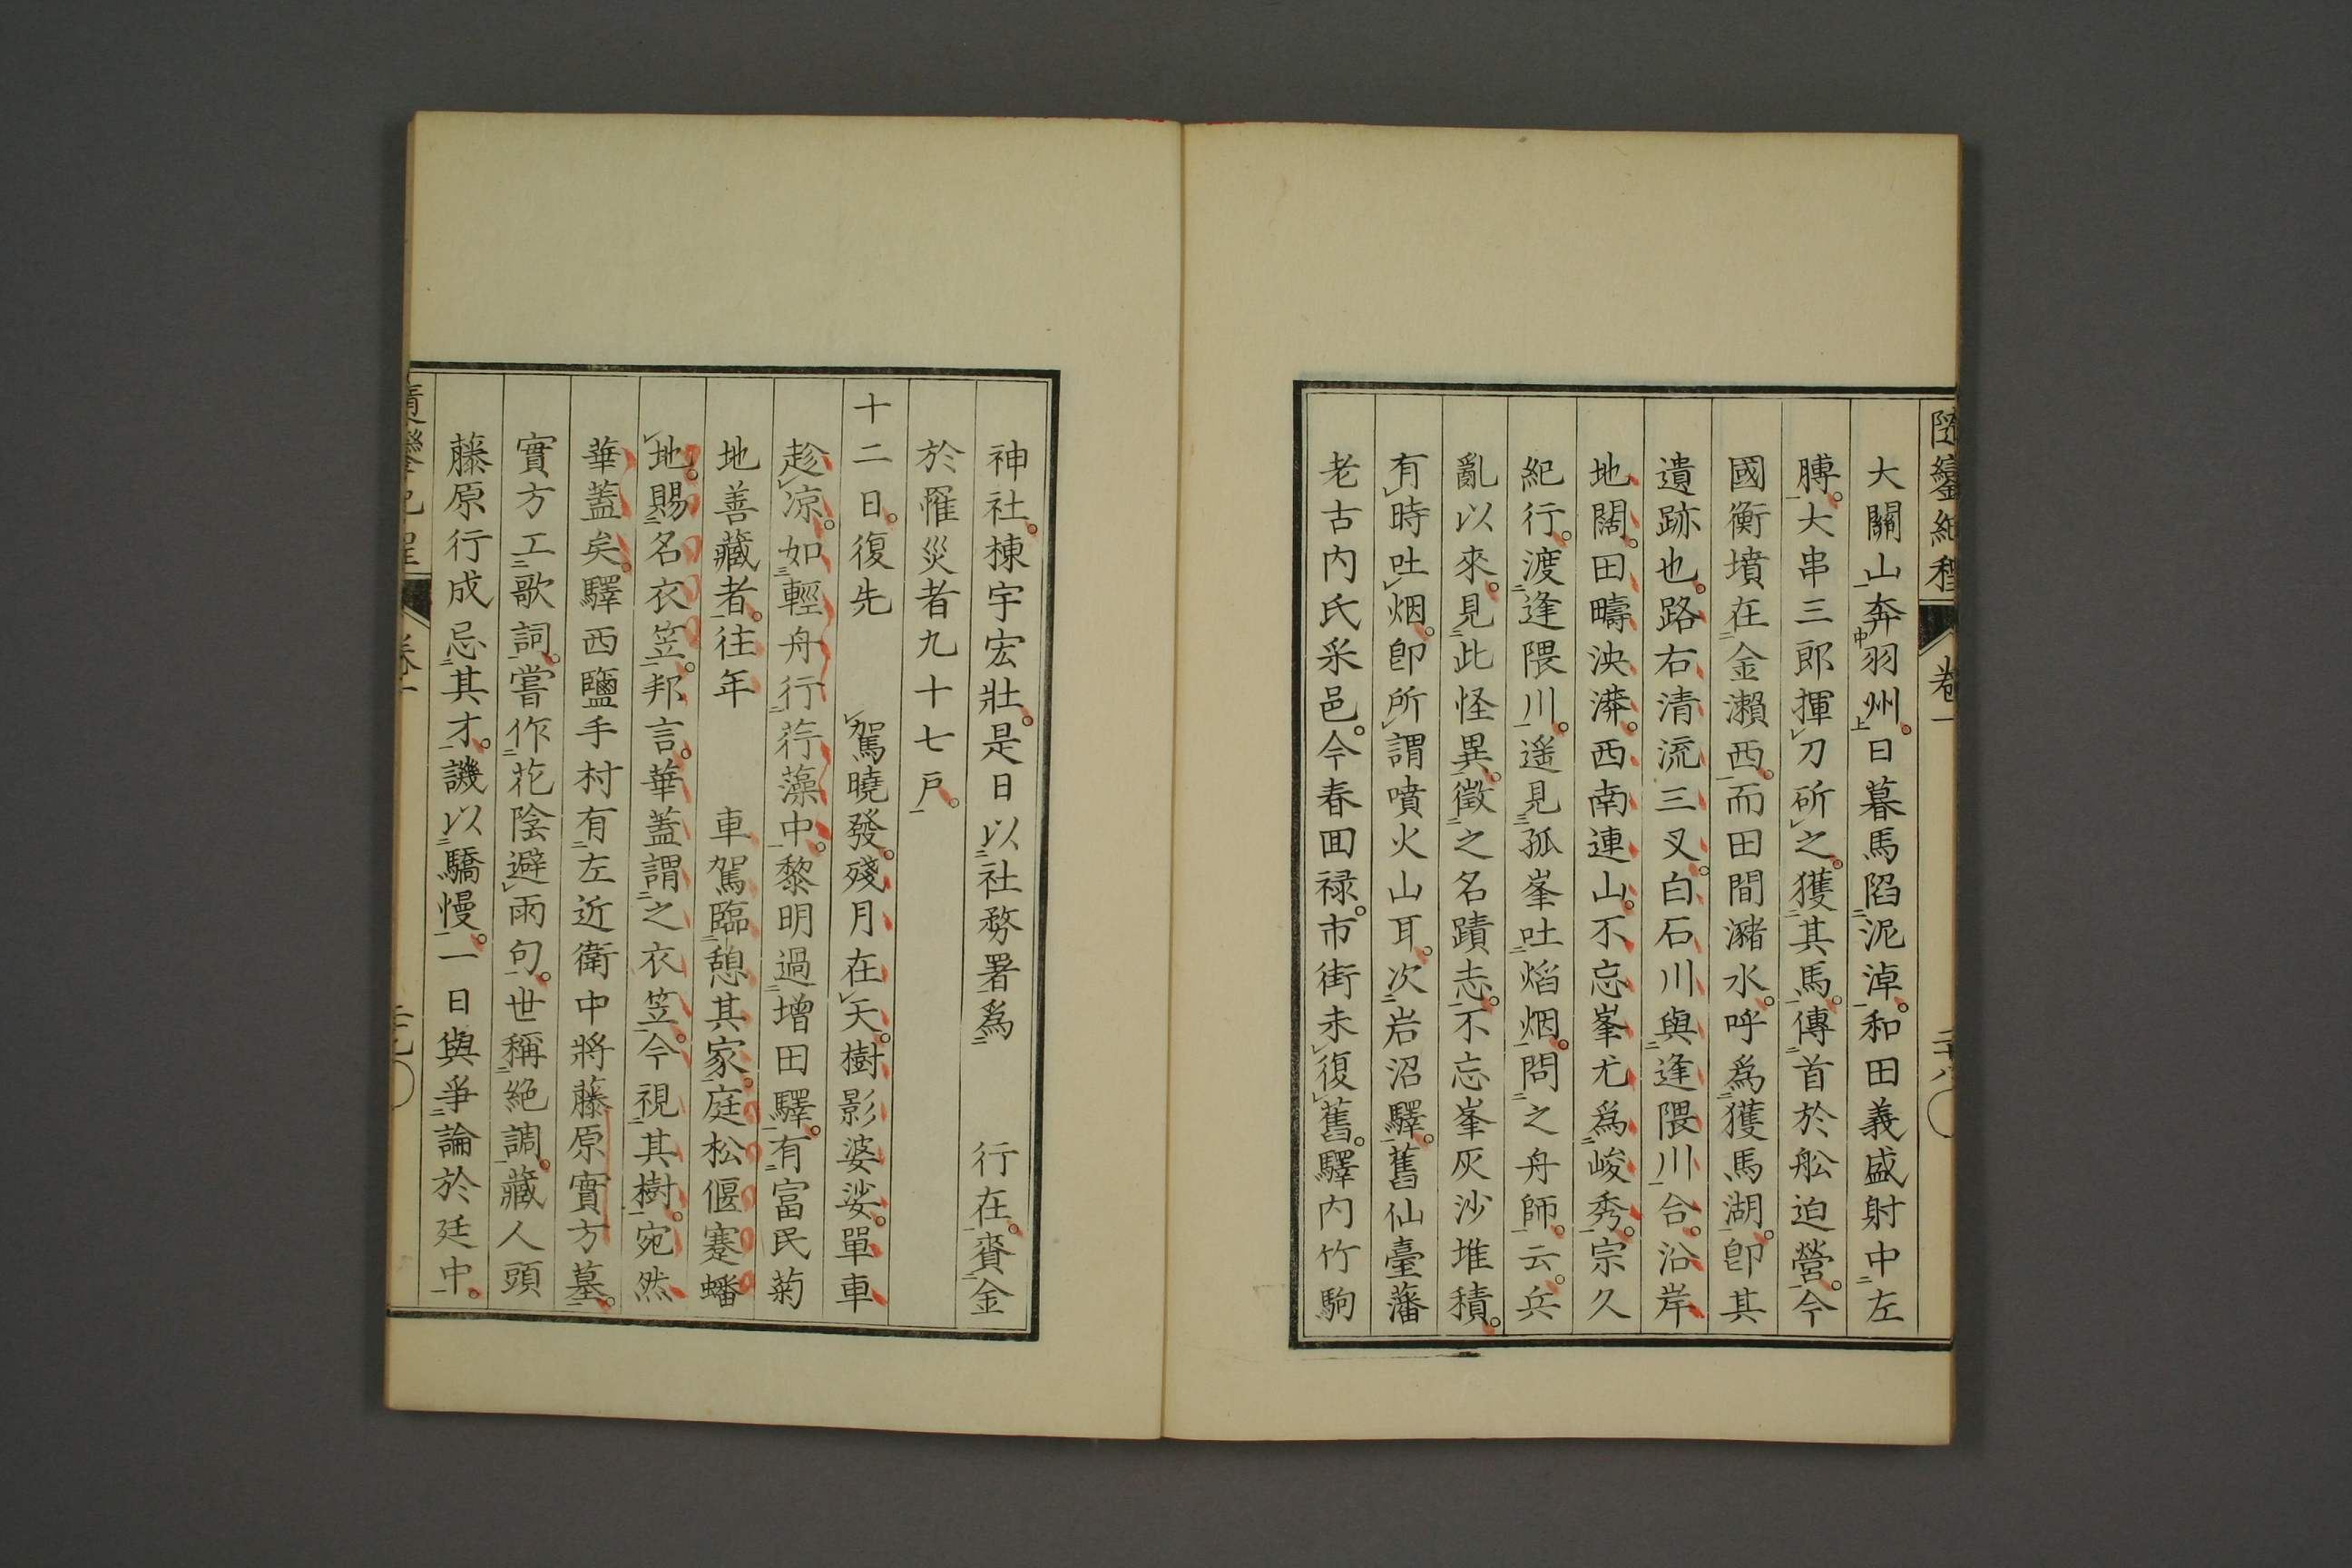 隨鑾紀程 卷一
大關山奔羽州。日暮馬陷泥淖。和田義盛射中左
膊。大串三郎揮刀斫之。獲其馬。傳首於舩迫營。今
國衡墳在金瀨西。而田間瀦水。呼爲獲馬湖。卽其
遺跡也。路右清流三叉。白石川與逢隈川合。沿岸
地闊。田疇泱漭。西南連山。不忘峯尤爲峻秀。宗久
紀行。渡逢隈川。遥見孤峯吐焰烟。問之舟師。云。兵
亂以來。見此怪異。徵之名蹟志。不忘峯灰沙堆積。
有時吐烟。卽所謂噴火山耳。次岩沼驛。舊仙臺藩
老古内氏采邑。今春囬禄。市街未復舊。驛内竹駒
神社。棟宇宏壯。是日以社務署爲 行在。賚金
於罹災者九十七戸。
十二日。復先 駕曉發。殘月在天。樹影婆娑。單車
趁凉。如輕舟行荇藻中。黎明過增田驛。有富民菊
地善藏者。往年 車駕臨憩其家。庭松偃蹇蟠
地。賜名衣笠。邦言。華蓋謂之衣笠。今視其樹。宛然
華蓋矣。驛西鹽手村有左近衛中將藤原實方墓。
實方工歌詞。嘗作花陰避雨句。世稱絶調。藏人頭
藤原行成忌其才。譏以驕慢。一日與爭論於廷中。
卷一